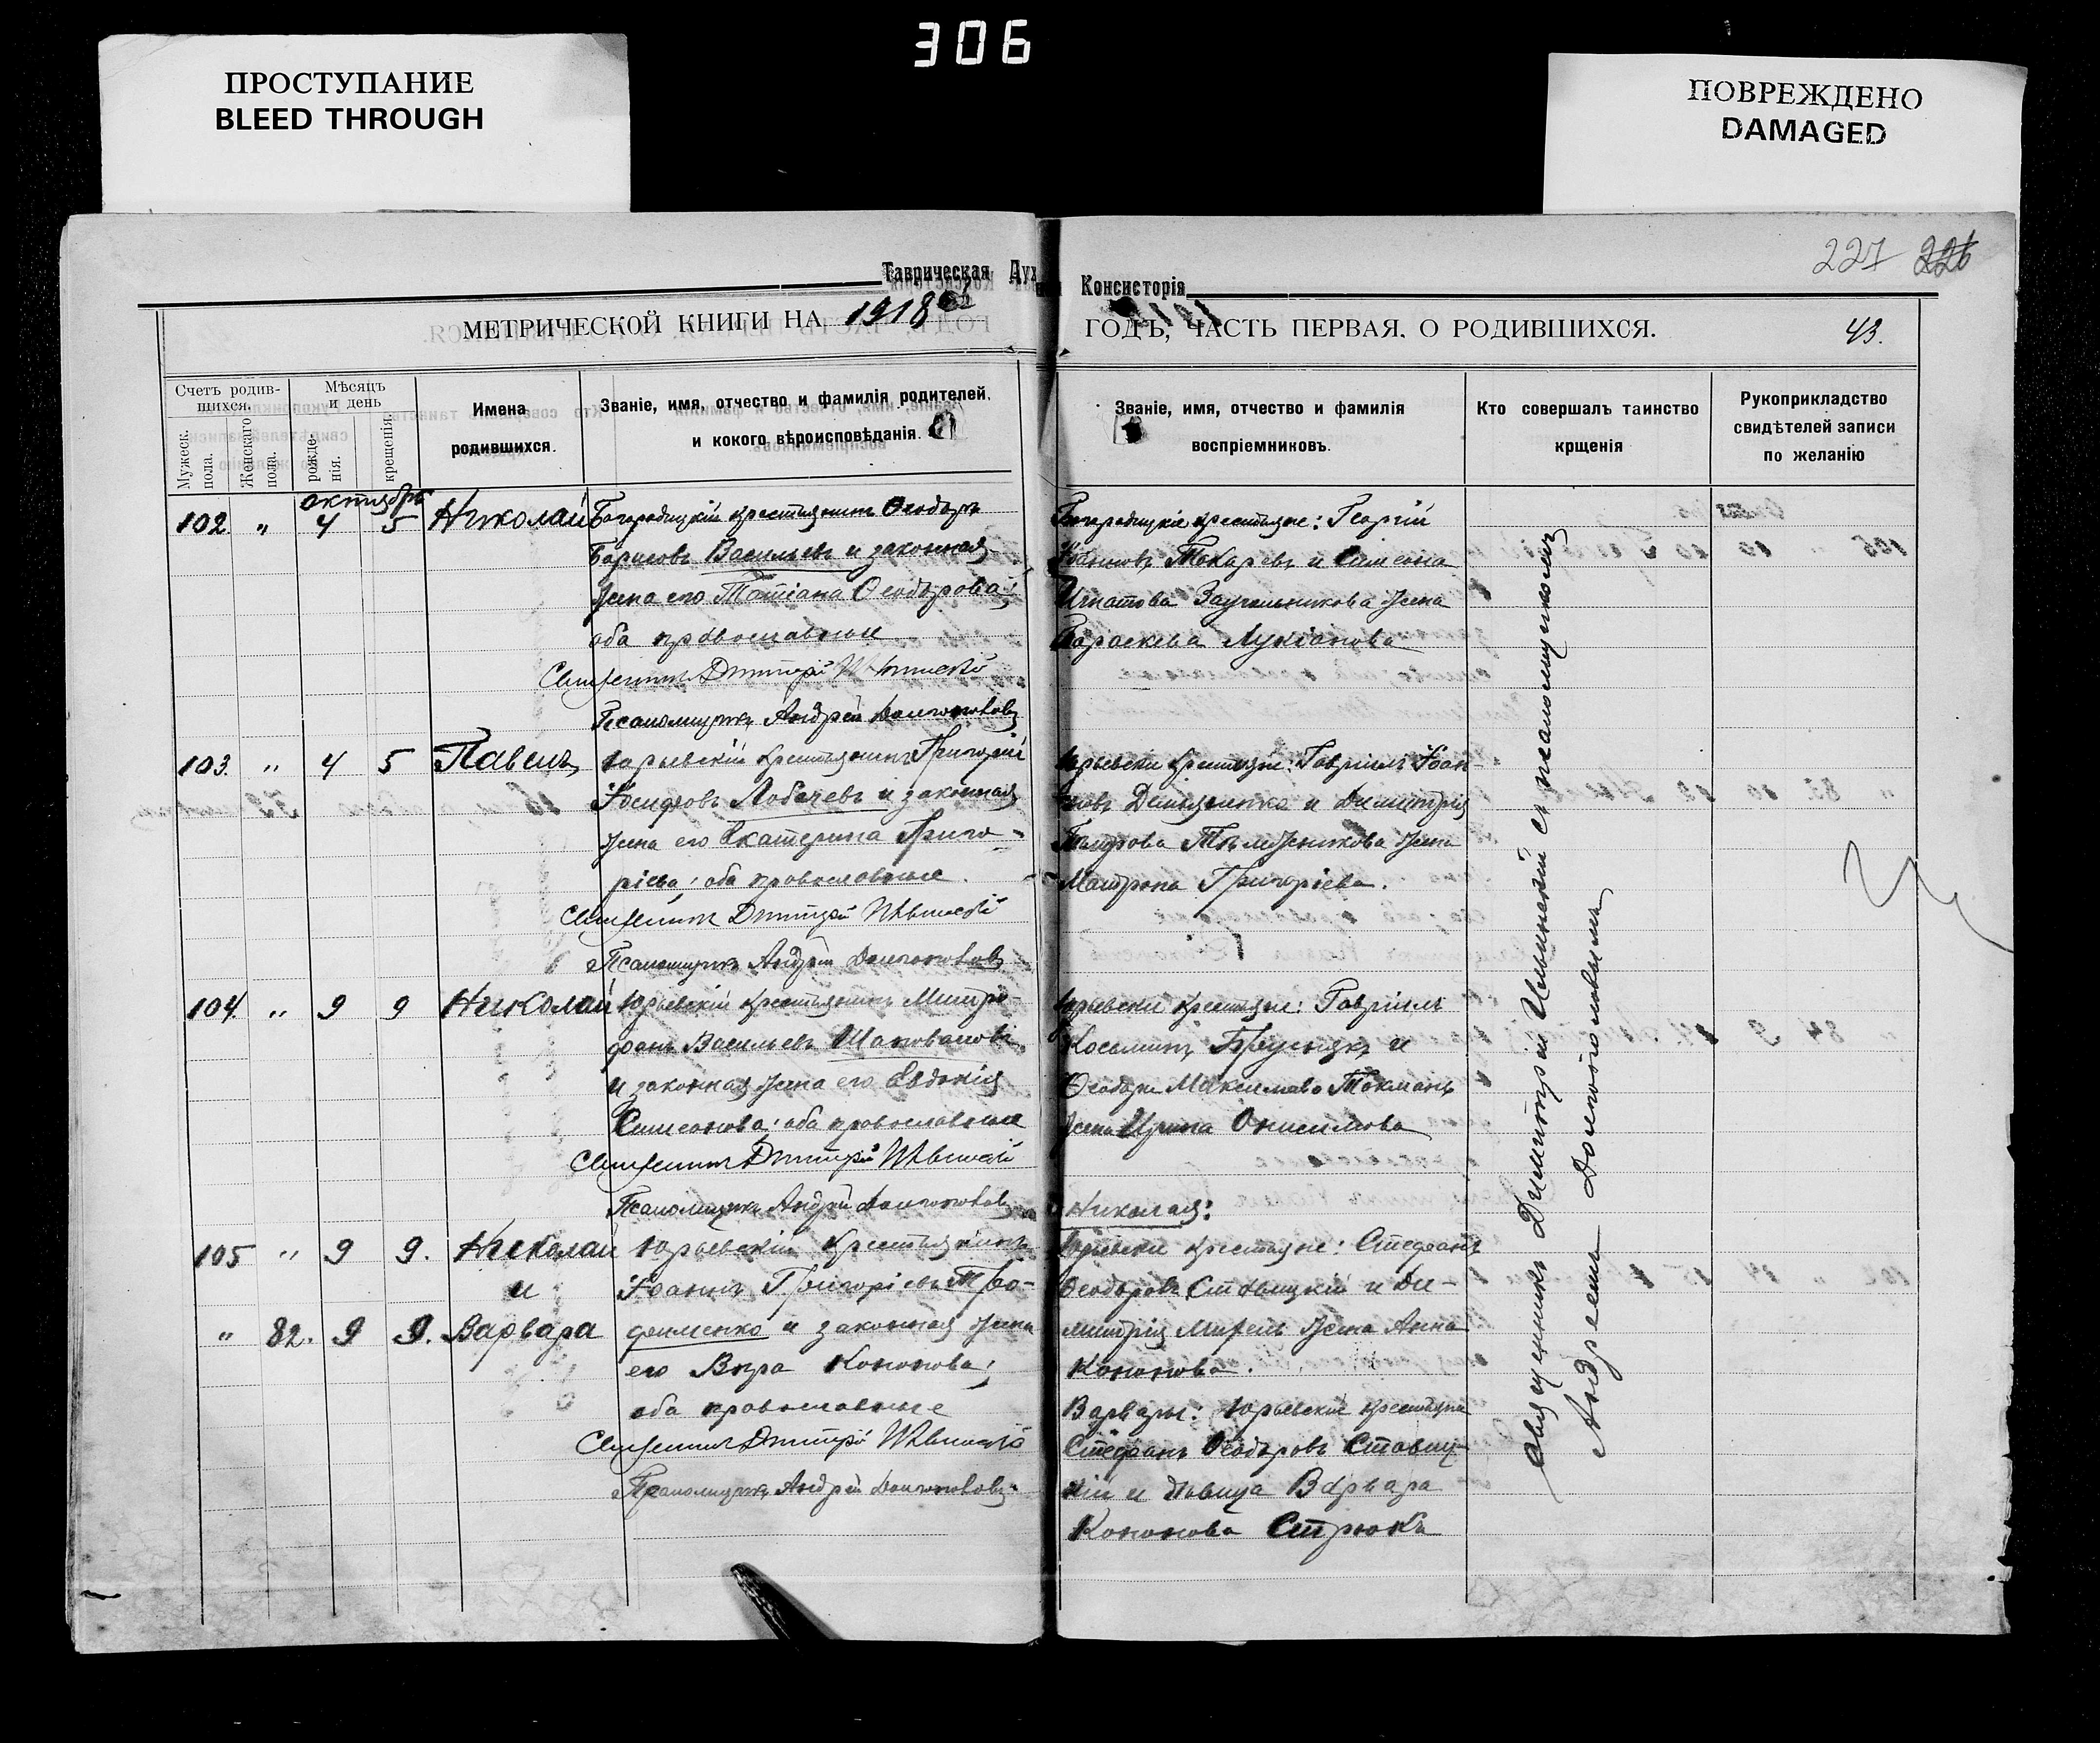 306
ПРОСТУПАНИЕ
BLEED THROUGH
ПОВРЕЖДЕНО
DAMAGED
227 226
Таврическая Дух Консисторія
МЕТРИЧЕСКОЙ КНИГИ НА 1918 ГОДЪ, ЧАСТЬ ПЕРВАЯ, О РОДИВШИХСЯ. 43.
Счетъ родив-
шихся.
Мужеск.
пола.
Женскаго
пола.
Мѣсяцъ
и день
рожде-
нія.
крещенія.
Имена
родившихся.
Званіе, имя, отчество и фамилія родителей.
и кокого вѣроисповѣданія.
Званіе, имя, отчество и фамилія
воспріемниковъ.
Кто совершалъ таинство
крщенія
Рукоприкладство
свидѣтелей записи
по желанію
октябрь
102 " 4 5 Николай
Богородицкій крестьянинъ Ѳеодоръ
Борисовъ Васильевъ и законная
жена его Татіана Ѳеодорова;
оба православные
Священникъ Дмитрій Ильинскій
Псаломщикъ Андрей Долгополовъ
Богородицкіе крестьяне: Георгій
Іоанновъ Токаревъ и Симеона
Игнатова Заугольникова жена
Параскева Лукіанова
103. " 4 5 Павелъ
Юрьевскій крестьянинъ Григорій
Исидоровъ Лобачевъ и законная
жена его Екатерина Григо-
ріева; оба православные.
Священникъ Дмитрій Ильинскій
Псаломщикъ Андрей Долгополовъ
Юрьевскіе крестьяне: Гавріилъ Іоан-
новъ Демьяненко и Димитрія
жена
Матрона Григоріева.
104. " 9 9 Николай
Юрьевскій крестьянинъ Митро-
фанъ Васильевъ Шаповаловъ
и законная жена его Евдокія
Симеонова; оба православные
Священникъ Дмитрій Ильинскій
Псаломщикъ Андрей Долгополовъ
Юрьевскіе крестьяне: Гавріилъ
Косьминъ и
Ѳеодора Максимова Токмань
жена Ирина Онисимова
105 " 9 9. Николай
и
" 82. 9 9. Варвара
Юрьевскій крестьянинъ
Іоаннъ Григорьевъ Тро-
фименко и законная жена
его Вѣра Кононова;
оба православные
Священникъ Дмитрій Ильинскій
Псаломщикъ Андрей Долгополовъ
Николая:
Юрьевскіе крестьяне: Стефанъ
Ѳеодоровъ Ставицкій и Ди-
митрія жена Анна
Кононова.
Варвары: Юрьевскіе крестьяне
Стефанъ Ѳеодоровъ Ставиц-
кій и дѣвица Варвара
Кононова Стрюкъ
Священникъ Димитрій Ильинскій съ псаломщикомъ
Андреемъ Долгополовымъ